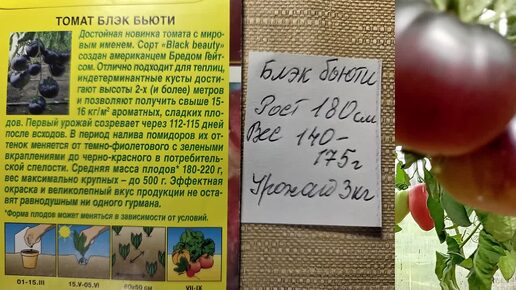 ТОМАТ БЛЭК БЬЮТИ
Достойная новинка томата с ми-
ровым именем. Сорт «Black beauty»
создан американцем Бредом Гейт-
сом. Отлично подходит для теплиц,
индетерминантные кусты дости-
гают высоты 2-х (и более) метров
и позволяют получить свыше 15-
16 кг/м² ароматных, сладких пло-
дов. Первый урожай созревает через 112-115 дней
после всходов. В период налива помидоров их от-
тенок меняется от темно-фиолетового с зелеными
вкраплениями до черно-красного в потребитель-
ской спелости. Средняя масса плодов* 180-220 г,
вес максимально крупных – до 500 г. Эффектная
окраска и великолепный вкус продукции не остав-
вят равнодушным ни одного гурмана.
*Форма плодов может меняться в зависимости от условий.
01-15.III
15.V-05.VI
60x50 см
VII-IX
Блэк бьюти
Рост 180 см
Вес 140-
175 г
Урожай 3 кг